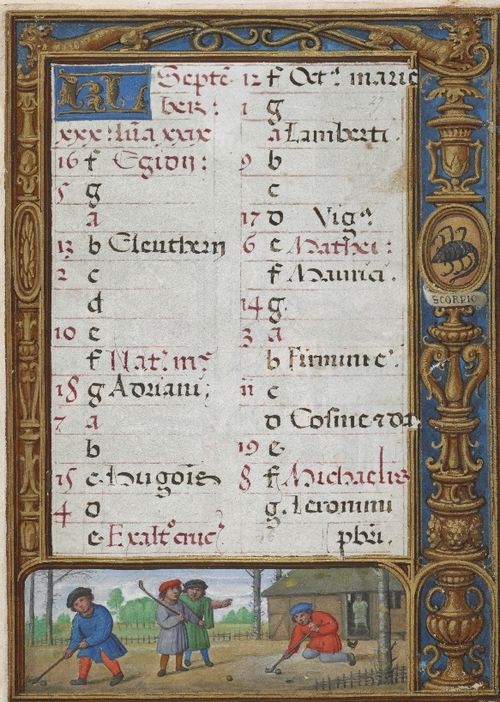 KL Septē
ber:
xxx: luā xxix
16 f Egidij:
5 g
a
13 b Eleutherij
2 c
d
10 e
f Nat.ˢ m.
18 g Adriani:
7 a
b
15 c
4 d
e Exalt.º cruc.ˢ
12 f Oct.ᵃ marie
1 g
a Lamberti.
9 b
c
17 d Vig.ᵃ
6 e Mathei:
f Maurici.
14 g.
3 a
b Firmini e.ˢ
11 c
d Cosme ⁊ da.
19 e
8 f Michaelis
g Ieronimi
pbr̄i.
SCORPIO